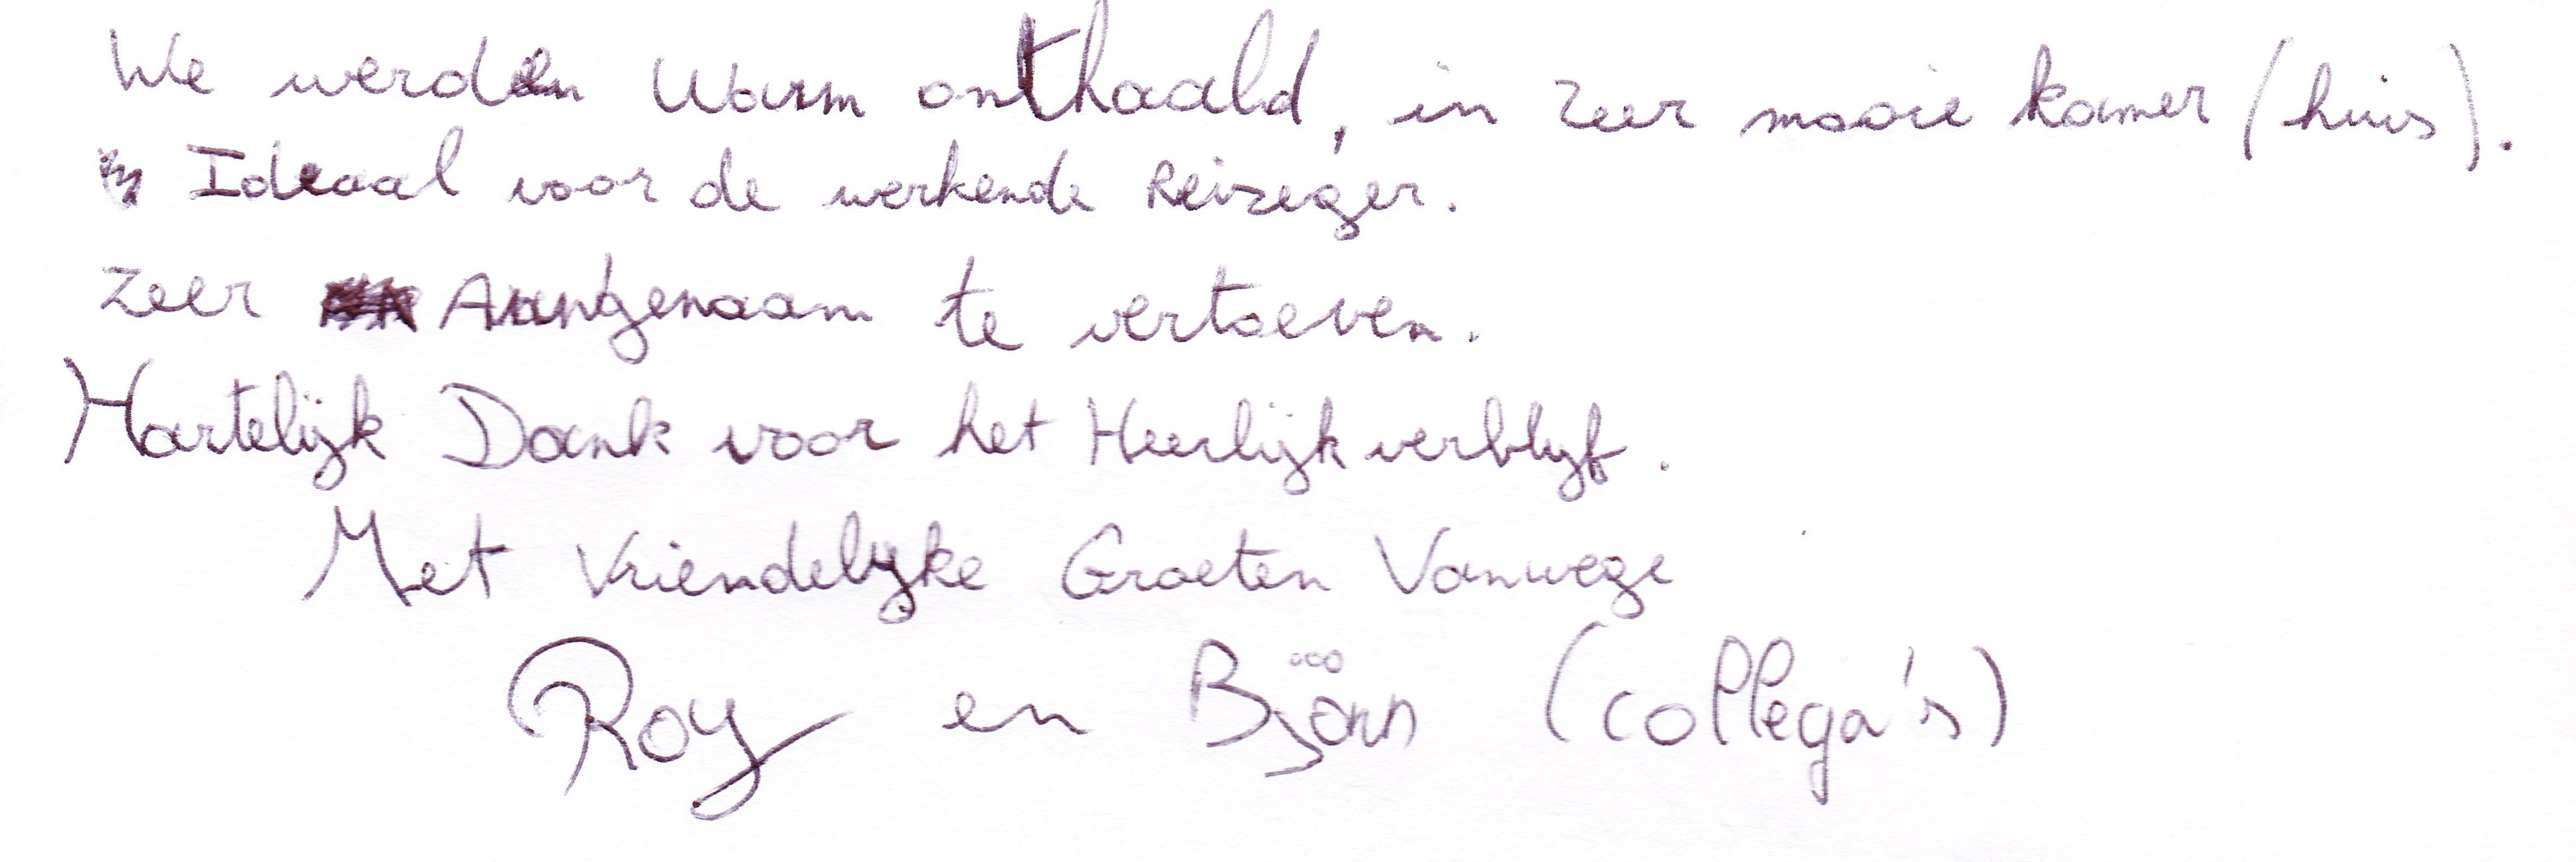 We werden Warm onthaald, in zeer mooie kamer (huis).
Ideaal voor de werkende Reiziger.
Zeer Aangenaam te vertoeven.
Hartelijk Dank voor het Heerlijk verblijf.
Met Vriendelijke Groeten Vanwege
Roy en Björn (collega's)